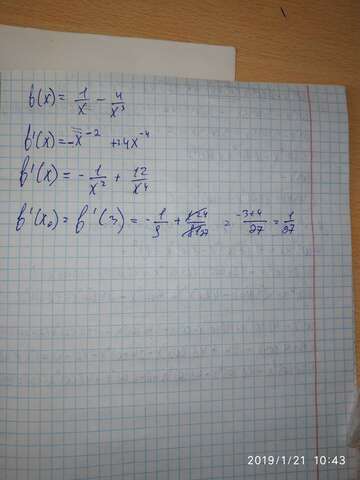 f(x) = 1/x - 4/x³
f'(x) = -x⁻² + 4x⁻⁴
f'(x) = - 1/x² + 12/x⁴
f'(x₀) = f'(3) = - 1/9 + 4/27 = -3+4/27 = 1/27
2019/1/21 10:43